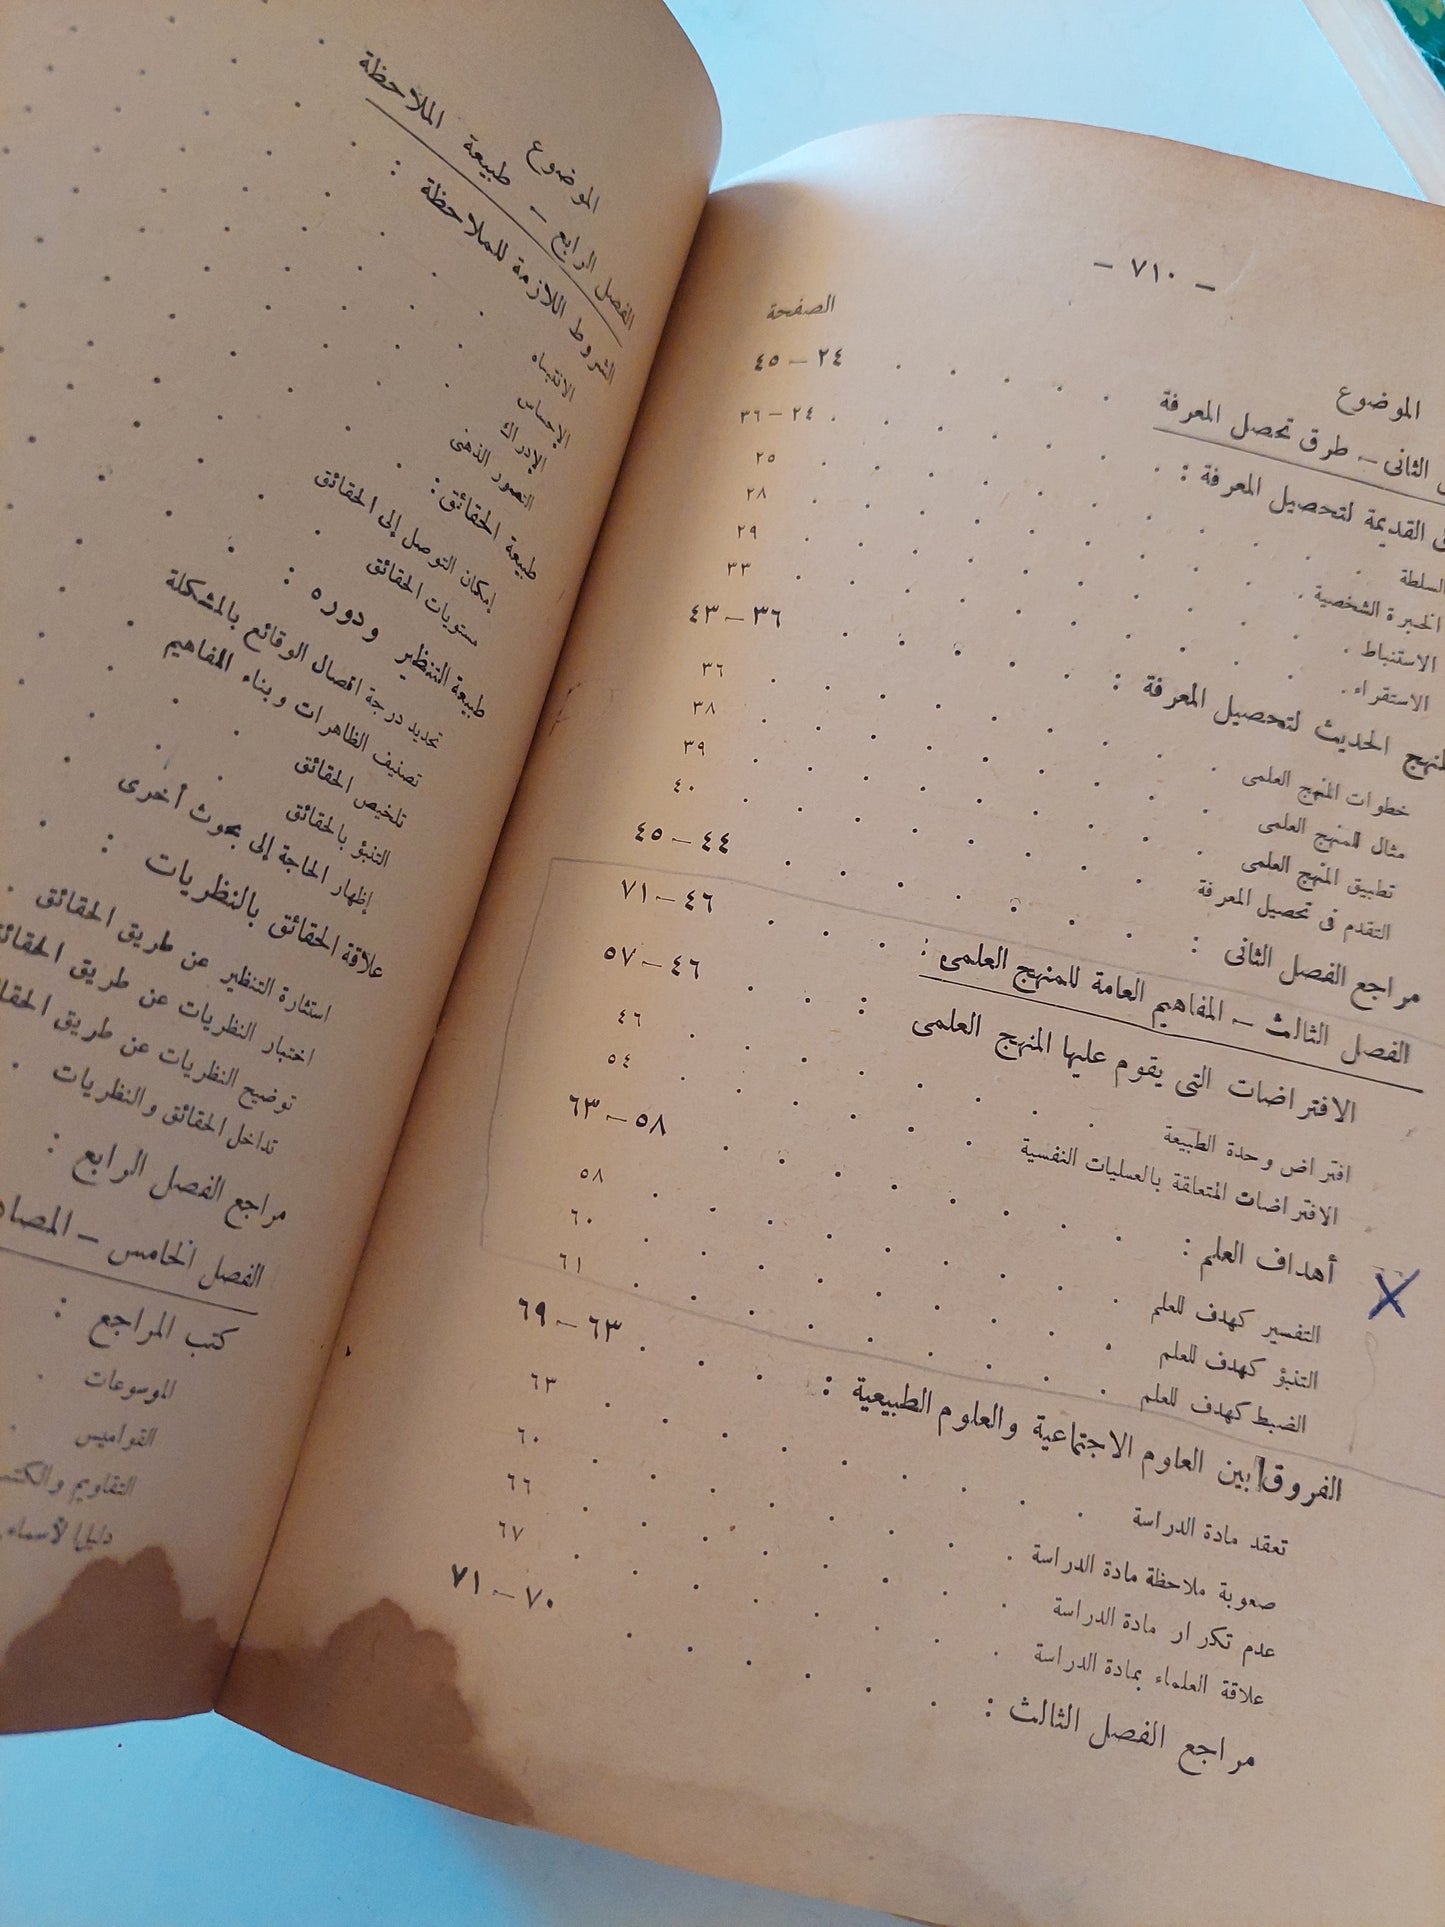 — ٧١٠ —
الموضوع الصفحة
الثانى — طرق تحصل المعرفة ٢٤ — ٤٥
القديمة لتحصيل المعرفة : ٢٤ — ٣٦
السلطة ٢٥
الخبرة الشخصية ٢٨
الاستنباط ٢٩
الاستقراء ٣٣
المنهج الحديث لتحصيل المعرفة : ٣٦ — ٤٣
خطوات المنهج العلمى ٣٦
مثال للمنهج العلمى ٣٨
تطبيق المنهج العلمى ٣٩
التقدم فى تحصيل المعرفة ٤٠
مراجع الفصل الثانى : ٤٤ — ٤٥
الفصل الثالث — المفاهيم العامة للمنهج العلمى : ٤٦ — ٧١
الافتراضات التى يقوم عليها المنهج العلمى : ٤٦ — ٥٧
افتراض وحدة الطبيعة ٤٦
الافتراضات المتعلقة بالعمليات النفسية ٥٤
أهداف العلم : ٥٨ — ٦٣
التفسير كهدف للعلم ٥٨
التنبؤ كهدف للعلم ٦٠
الضبط كهدف للعلم ٦١
الفروق بين العلوم الاجتماعية والعلوم الطبيعية : ٦٣ — ٦٩
تعقد مادة الدراسة ٦٣
صعوبة ملاحظة مادة الدراسة ٦٠
عدم تكرار مادة الدراسة ٦٦
علاقة العلماء بمادة الدراسة ٦٧
مراجع الفصل الثالث : ٧٠ — ٧١
الموضوع
الفصل الرابع — طبيعة الملاحظة
الشروط اللازمة للملاحظة :
الانتباه
الإحساس
الإدراك
التصور الذهنى
طبيعة الحقائق :
إمكان التوصل إلى الحقائق
مستويات الحقائق
طبيعة التنظير ودوره :
تحديد درجة اتصال الوقائع بالمشكلة
تصنيف الظاهرات وبناء المفاهيم
تلخيص الحقائق
التنبؤ بالحقائق
إظهار الحاجة إلى بحوث أخرى
علاقة الحقائق بالنظريات :
استثارة التنظير عن طريق الحقائق
اختبار النظريات عن طريق
توضيح النظريات عن طريق
تداخل الحقائق والنظريات
مراجع الفصل الرابع :
الفصل الخامس —
كتب المراجع :
الموسوعات
القواميس
التقاويم